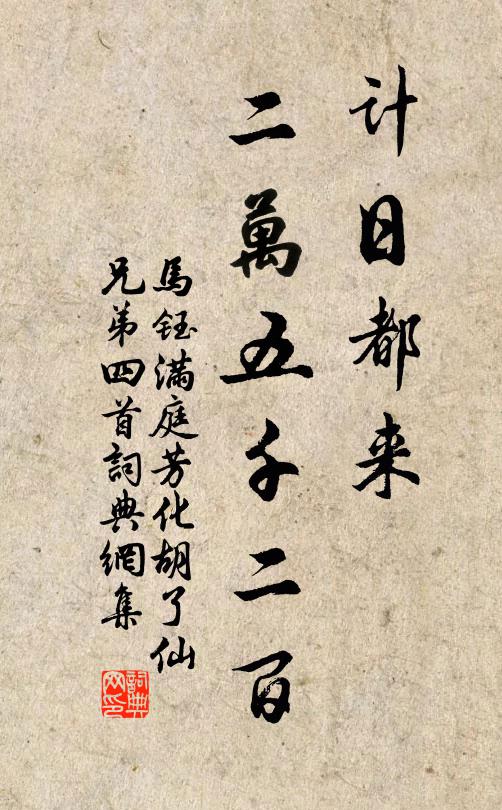 计日都来
二萬五千二百
馬鈺滿庭芳化胡了仙
兄弟四首詞典網集
詞典
网印